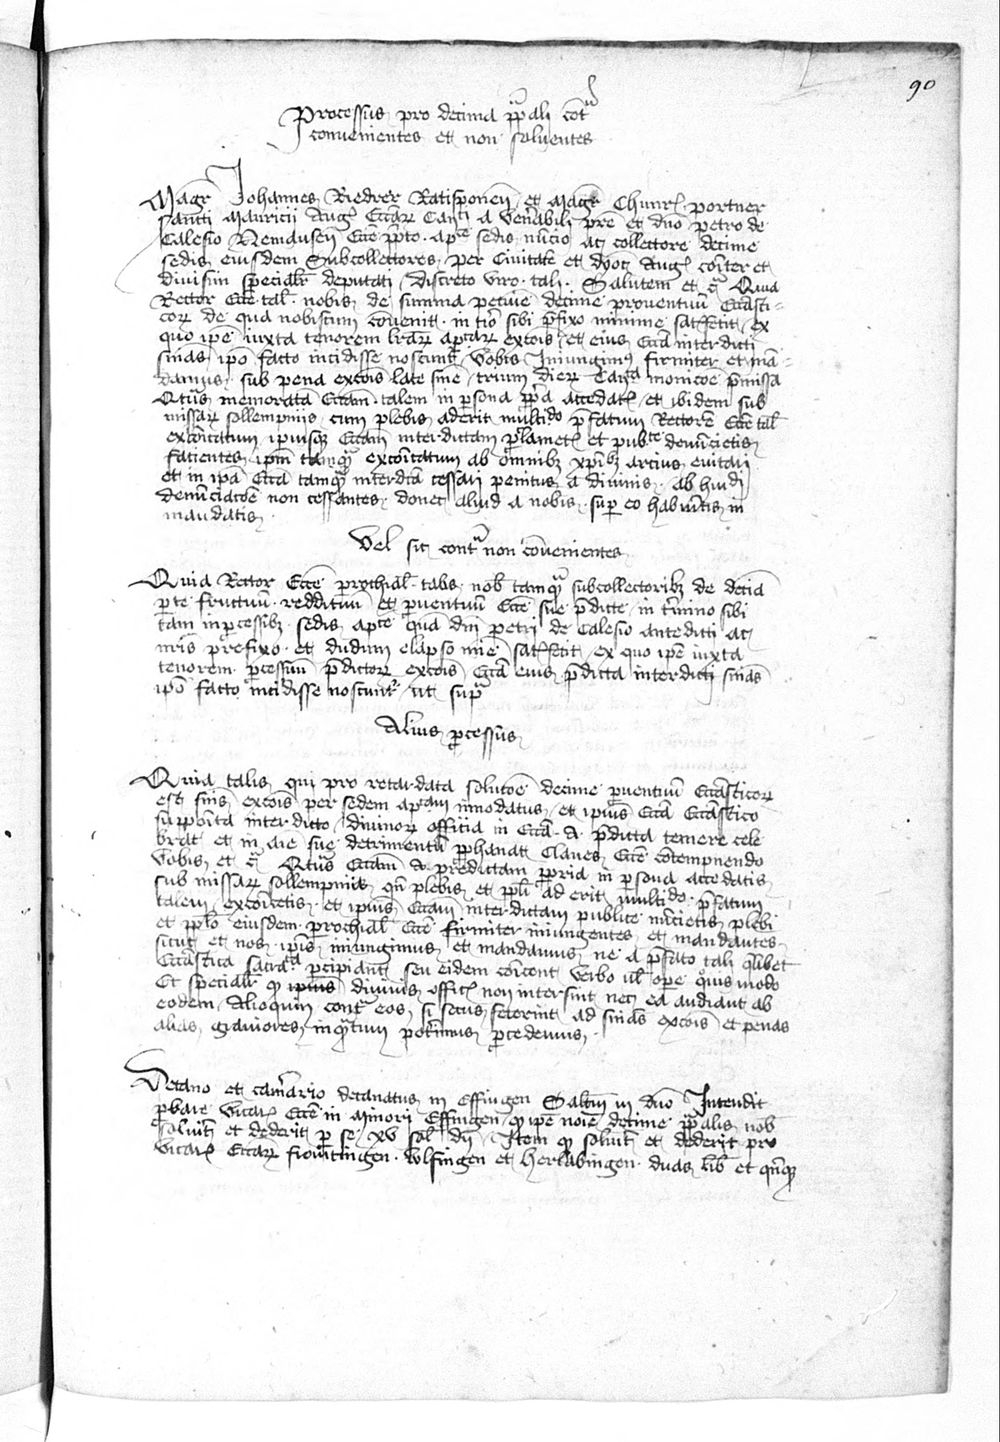 90
Processus pro decima ppali cont
convenientes et non solventes
Magr Johannes Riedrer Ratisponen et Magr Chunr portner
sancti Mauricii Aug Eccar Can a venabili pre et dno petro de
Calesio Nemausen Ecce ppto apce sedis nuncio ac collectore decime
sedis eiusdem Subcollectores per Civitate et dyoc Aug coiter et
divisim specialr deputati discreto viro tali Salutem et c Quia
Rector Ecce tal nobis de summa petuie decime proventuu Eccasti-
cor de qua nobiscum convenit in tio sibi pfixo minime satfecit ex
quo ipe iuxta tenorem lrar apcar excois et eius Ecca interdicti
snias ipo facto incidisse noscunt vobis Iniungim firmiter et man-
damus sub pena excois late snie trium dier Canca monicoe pmissa
Qtus memorata Eccam talem in psona ppa accedat et ibidem sub
missar sollempniis cum plebis aderit multido pfatum Rectore Ecce tal
excoicatum ipiusq Eccam interdictam plamet et pubce denuncietis
facientes ipm tamq excoicatum ab omnib xpib arcius evitari
et in ipa Ecca tamq interdca cessari penitus a divinis ab huidi
denunciacoe non cessantes donec aliud a nobis sup eo habuitis in
mandatis
Vel sic cont non convenientes
Quia Rector Ecce prochial talis nob tamq subcollectorib de decia
parte fructuu reddituu et pventuu Ecce sue pdicte in tmino sibi
tam in pcessib sedis apce qua dni petri de Calesio antedicti ac
nris prefixo et dudum elapso mie satfecit ex quo ipe iuxta
tenorem pcessuu pdictor excois Ecca eius pdicta interdicti snias
ipo facto incidisse noscunt ut sup
Alius pcessus
Quia talis qui pro retardata solucoe decime pventuu Eccasticor
est snis excois per sedem apcam innodatus et ipius Ecca Eccastico
supposita interdicto divinor officia in Ecca A pdicta temere cele
brat et in aie sue detrimentu pphanat Claves Ecce contempnendo
Vobis et c Qtus Eccam A predictam ppria in psona accedatis
sub missar sollempniis qn plebis et ppli aderit multido pfatum
talem excoicetis et ipius Eccam interdictam publice nuncietis plebi
et pplo eiusdem prochial Ecce firmiter iniungentes et mandantes
sicut et nos ipis iniungimus et mandamus ne a pfato tali qlibet
Eccastica sacrata pcipiant seu eidem coicent verbo vl ope quis modo
Et specialr q ipius divinis offic non intersint nec ea audiant ab
eodem Alioquin cont eos si secus fecerint ad snias excois et penas
alias graviores inqtum potimus pcedemus
Decano et camrario decanatus in Effingen Salutem in dno Intendit
pbare vicar Ecce in Minori Effingen q ipe noie decime ppalis nob
solvit et dederit p se xv sol dn Item q solvit et dederit pro
vicar Eccar fronttingen wolfingen et Hertabingen duas lib et qnq